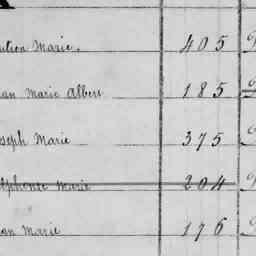 Marie. 405
an Marie Albert 185
seph Marie 375
lphonse Marie 204
an Marie 176